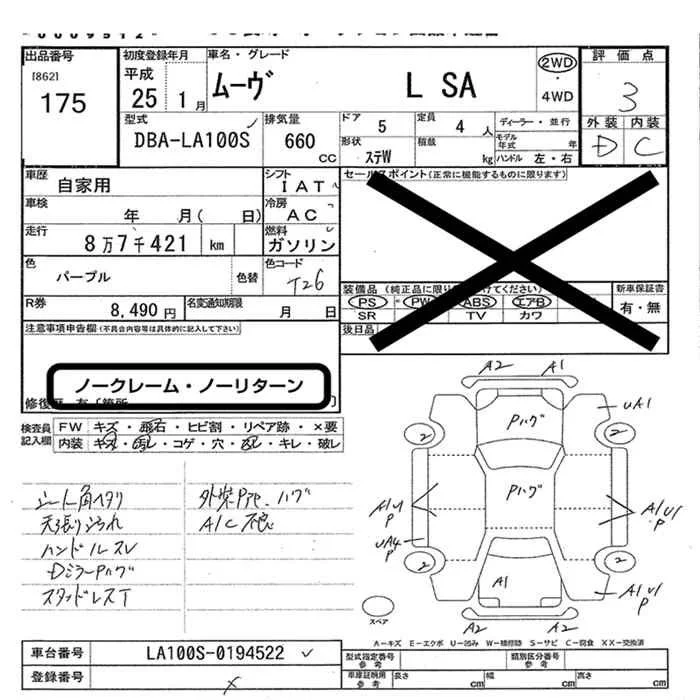 出品番号
[862]
175
初度登録年月
平成
25 1月
車名・グレード
ムーヴ L SA
2WD
・
4WD
評価点
3
外装 内装
D C
型式
DBA-LA100S
排気量
660
CC
ドア 5
定員 4 人
ディーラー・並行
形状 ステW
積載 kg
モデル年式 年
ハンドル 左・右
車歴
自家用
シフト
IAT
セールスポイント(正常に機能するものに限ります)
車検
年 月( 日)
冷房
AC
走行
8万7千421 km
燃料
ガソリン
色
パープル
色替
色コード
T26
装備品(純正品に限り
けてください)
新車保証書
PS PW ABS エアB
有・無
SR TV カワ
後日品
R券
8,490円
名変通知期限
月 日
注意事項申告欄(不具合内容等は具体的に記入して下さい)
ノークレーム・ノーリターン
検査員
記入欄
FW キズ・飛石・ヒビ割・リペア跡・×要
内装 キズ・汚レ・コゲ・穴・スレ・キレ・破レ
シート角ヘタリ
天張り汚れ
ハンドルスレ
Dミラーハゲ
スタッドレスT
外装P荒・ハゲ
A/C不良
A2 A1
Pハゲ
UA1
2 2
Pハゲ
A1U1
P
A1U1
P
UA4
P
2 2
A1
A1U1
P
A2 A2
スペア
A-キズ E-エクボ U-凹み W-補修跡 S-サビ C-腐食 XX-交換済
車台番号
LA100S-0194522
登録番号
型式指定番号
参考
類別区分番号
参考
車庫証明用
参考
長さ cm
幅 cm
高さ cm